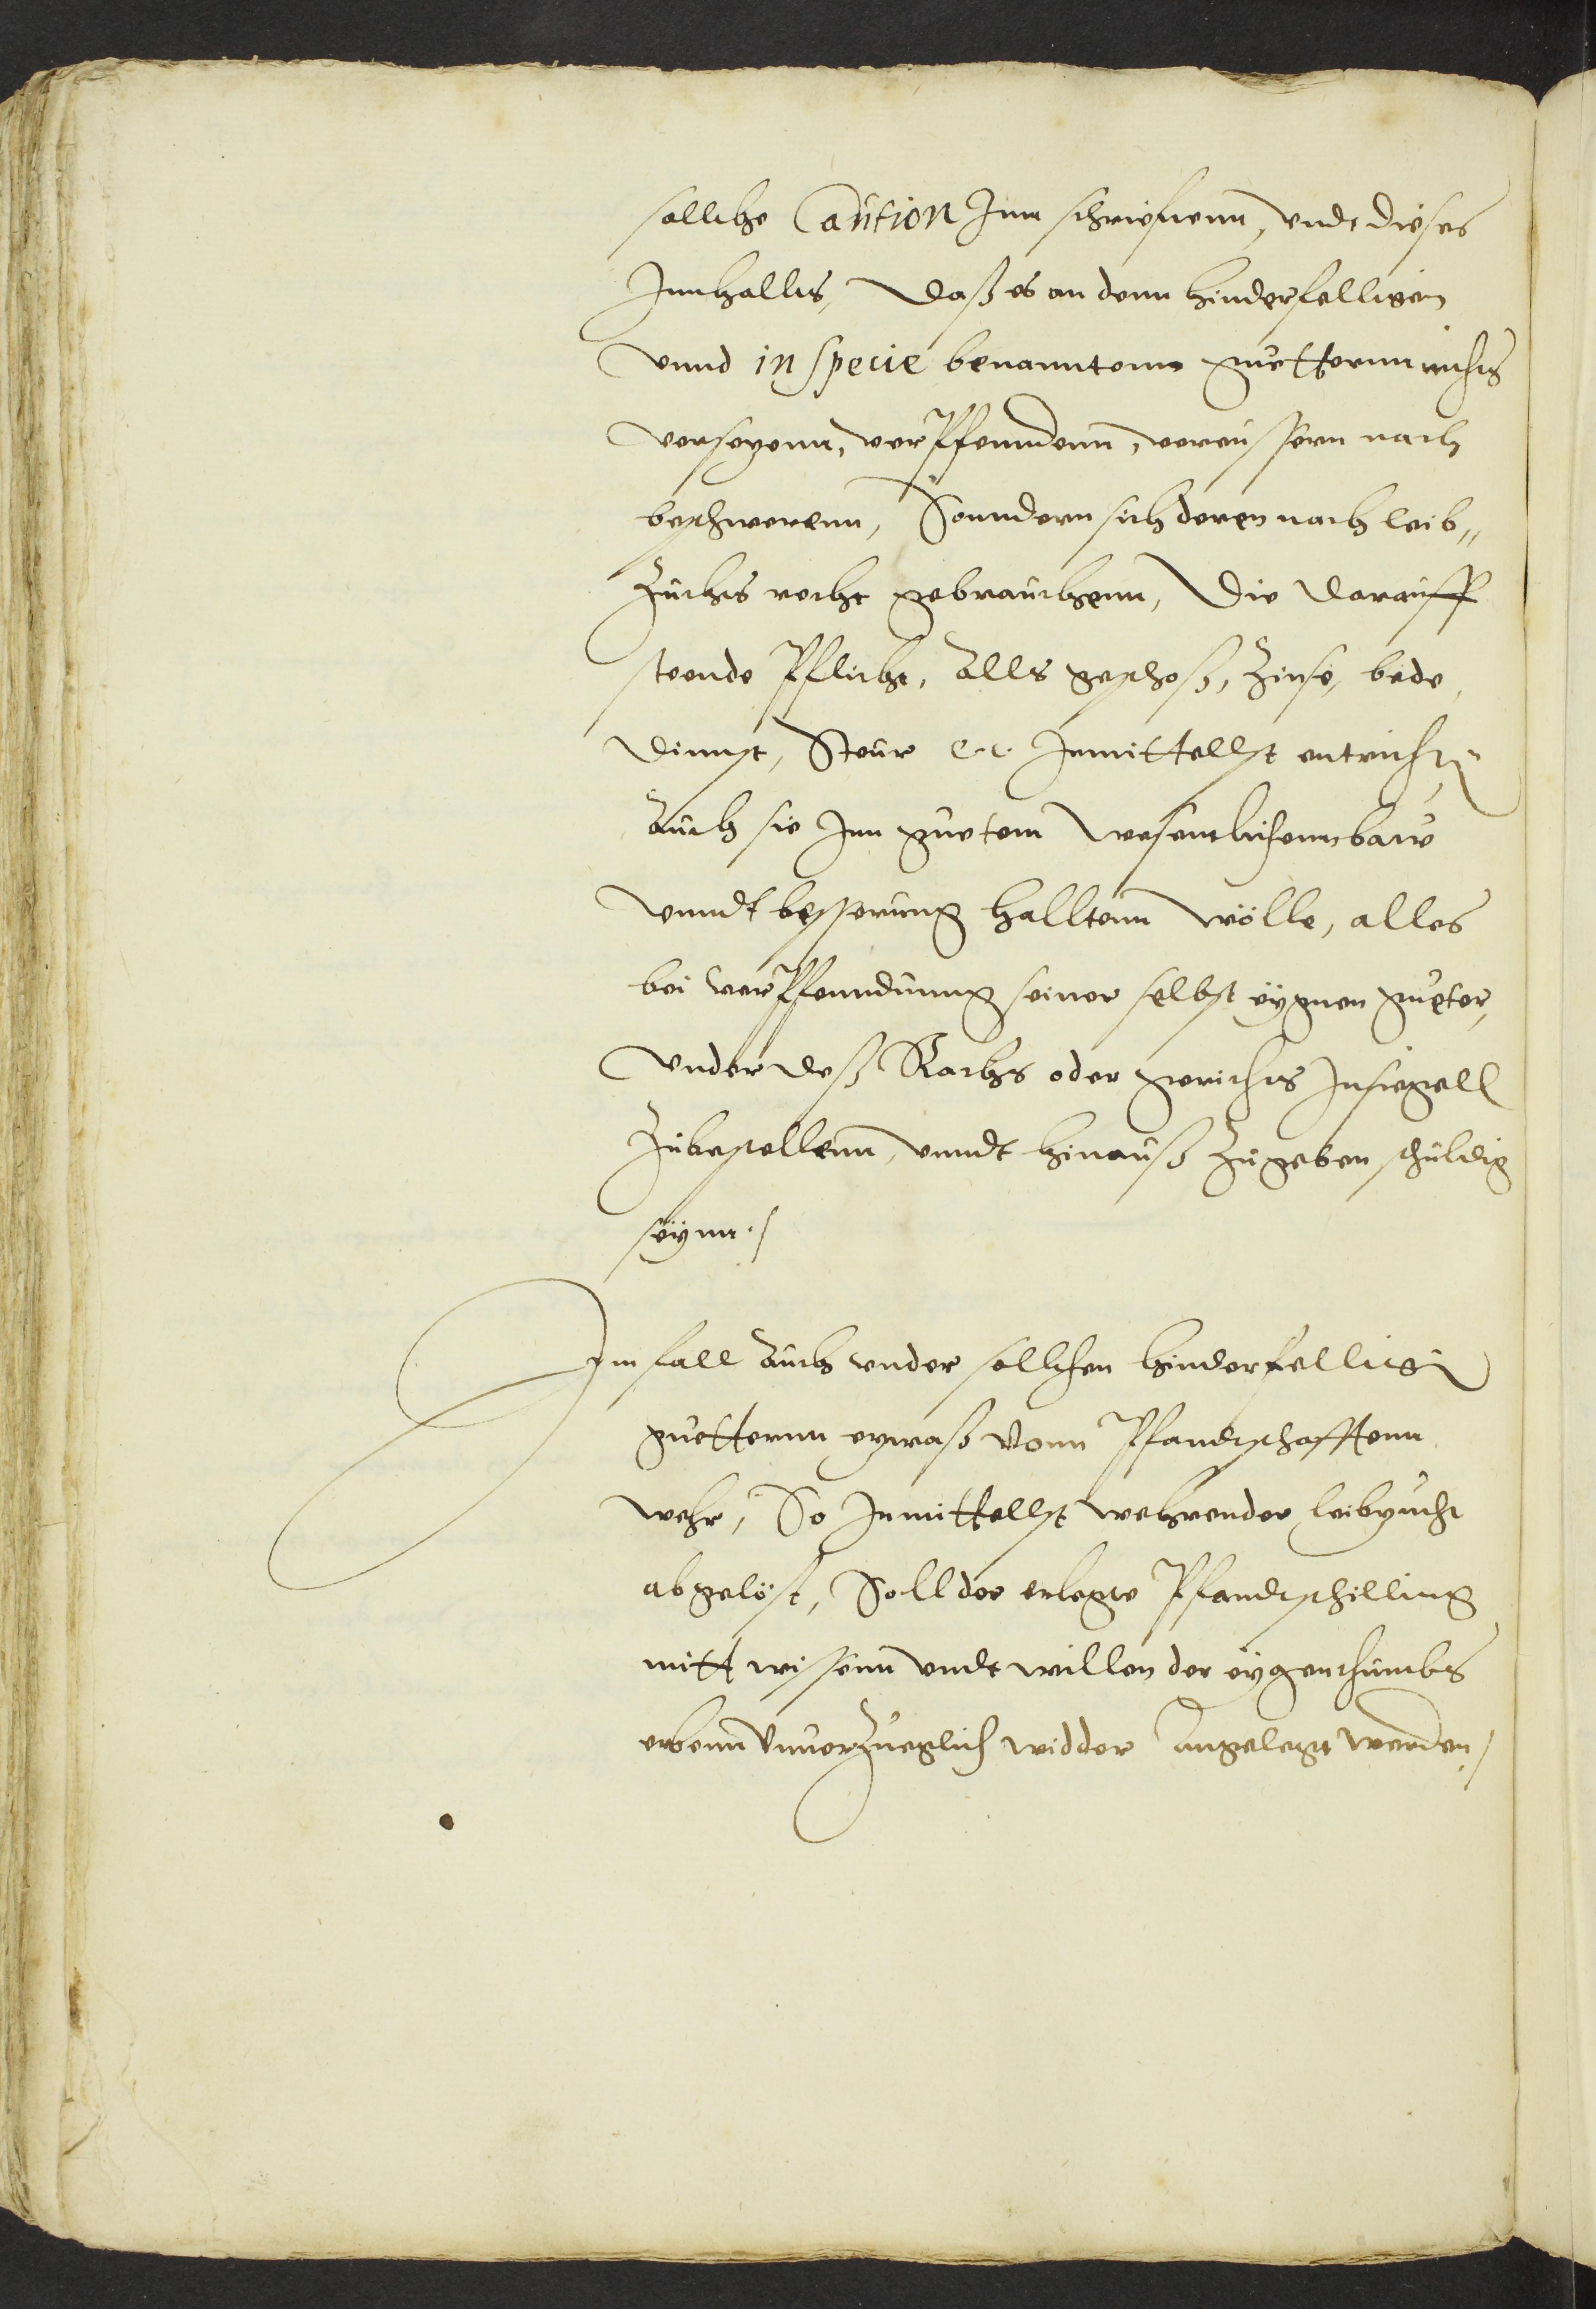 sollche Caution Inn schriefftenn, undt dieses
Innhallts, Daß es an denn hinderfelligen
vnnd in specie benanntenn guetternn nichts
versezenn, verpfenndenn, vereussern nach
beschwerenn, Sonndern sich deren nach leib„
Zuchts recht gebrauchenn, Die darauff
steende Pflicht, Alls geschoß, Zinse, bede
Dinnst, Steur etc. Inmittellst entrichten
Auch sie Inn guetem wesentlichenn bauw
vnndt besserung halltenn wölle, alles
bei verpfenndunng seiner selbst eÿgnen gueter,
vnder deß Rachts oder gerichts Insiegell
Zubestellenn, vnndt hinauß Zugeben schuldig
seÿnn./
Im fall Auch vnder sollchen hinderfelligen
guetternn etwaß vonn Pfandtschafftenn
wehr, So Inmittellst wehrender leibzucht
abgelöst, Soll der erlegte Pfandtschilling
mitt wissenn vndt willen der eÿgenthumbs
erbenn vnuerzueglich widder Angelegt werden./